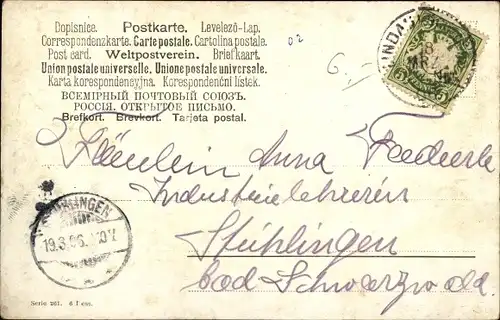 Dopisnice. Postkarte. Levelező-Lap.
Correspondenzkarte. Carte postale. Cartolina postale.
Post card. Weltpostverein. Briefkaart.
Union postale universelle. Unione postale universale.
Karta korespondencyjna. Korespondenční lístek.
ВСЕМІРНЫЙ ПОЧТОВЫЙ СОЮЗЪ.
РОССІЯ. ОТКРЫТОЕ ПИСЬМО.
Brefkort. Brevkort. Tarjeta postal.
5
Fräulein Anna
Industrielehrerin
Stühlingen
Bad. Schwarzwald.
STÜHLINGEN
19.3.06.
Serie 261.